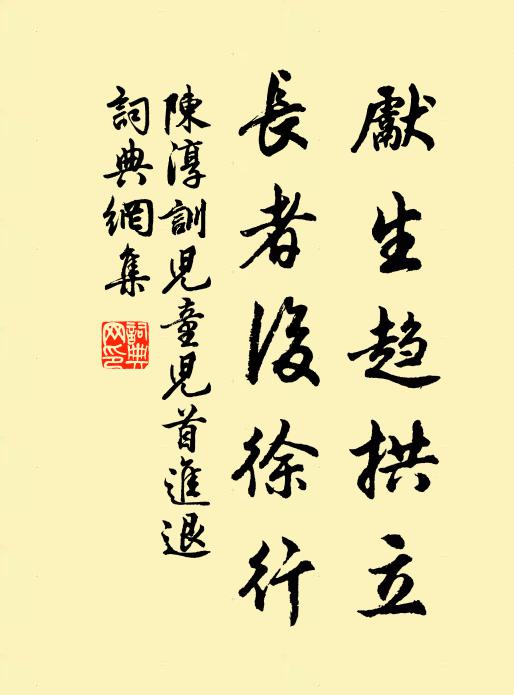 獻生趨拱立
長者後徐行
陳淳訓兒童兒首進退
詞典網集
詞典网印